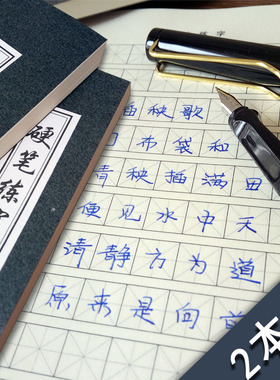 练字
插秧歌
布袋和
青秧插满田
便见水中天
清静方为道
原来是向
硬笔练
2本